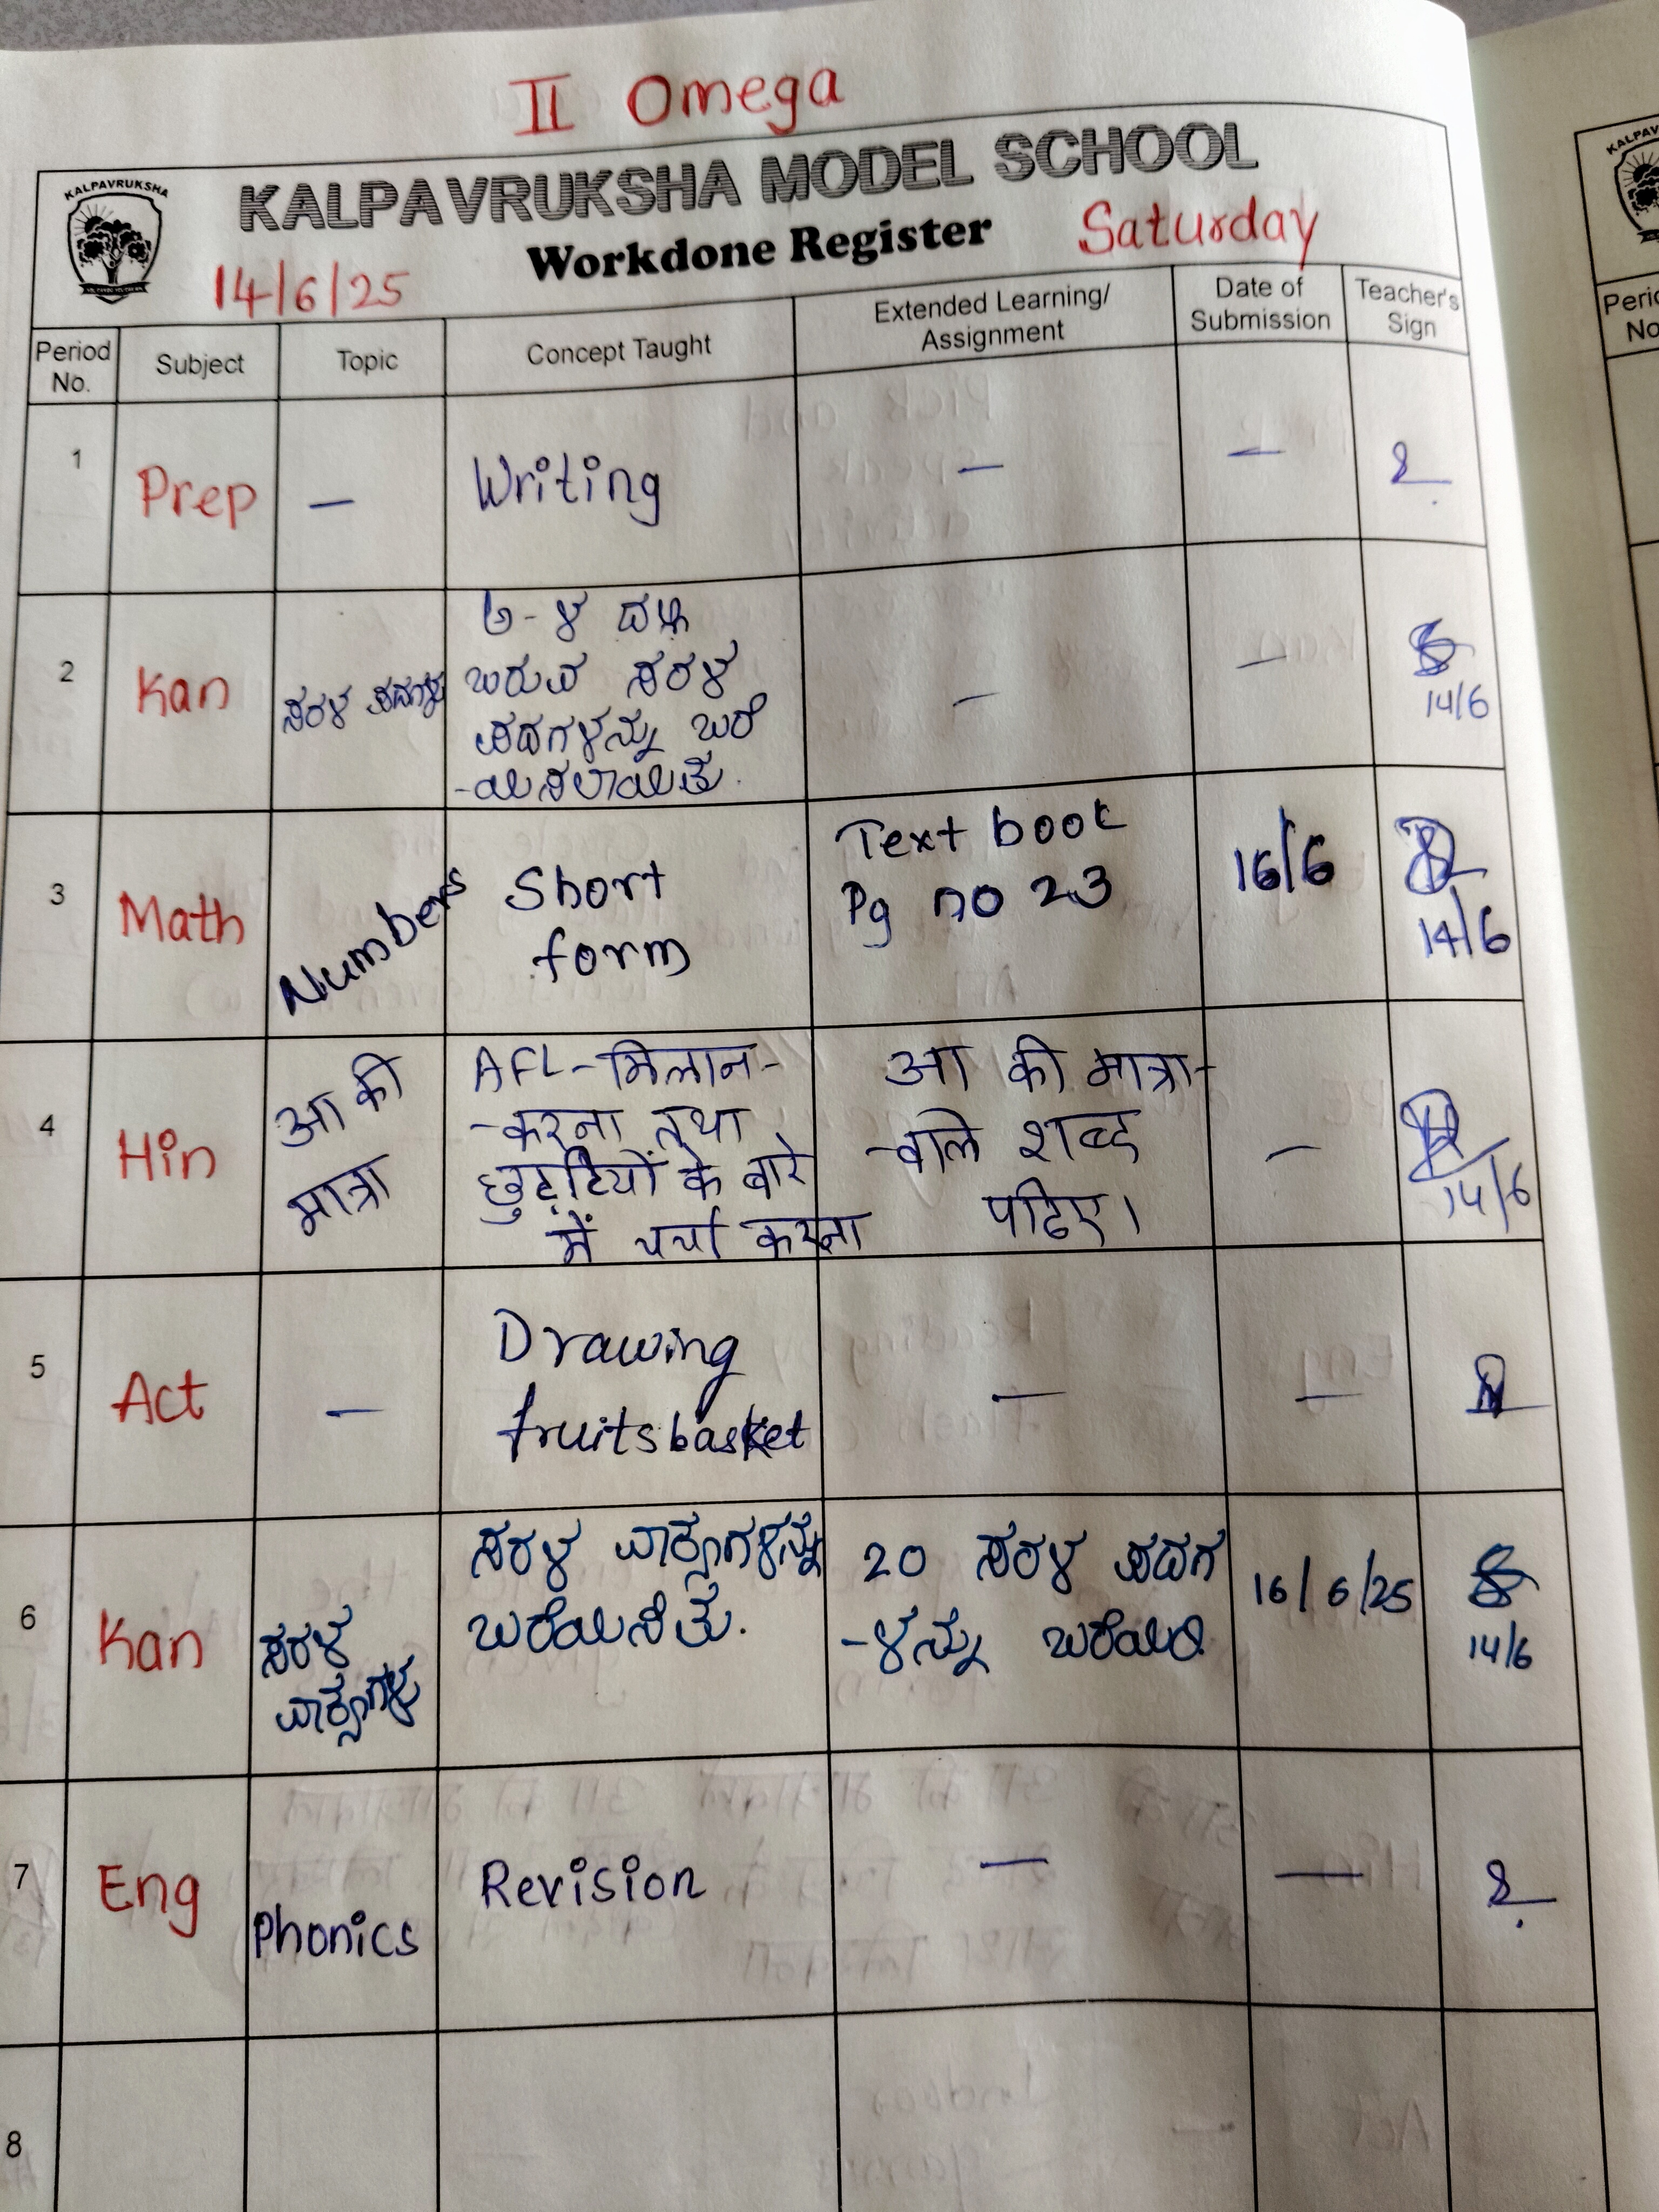 II Omega
KALPAVRUKSHA
KALPAVRUKSHA MODEL SCHOOL
Workdone Register
Saturday
14/6/25
Period No.
Subject
Topic
Concept Taught
Extended Learning/
Assignment
Date of
Submission
Teacher's
Sign
1
Prep
—
Writing
—
—
2
Kan
ಸರಳ ಪದಗಳು
ಅ-ಳ ದಲ್ಲಿ
ಬರುವ ಸರಳ
ಪದಗಳನ್ನು ಬರೆ
-ಯಿಸಲಾಯಿತು.
—
—
14/6
3
Math
Numbers
Short
form
Text book
Pg no 23
16/6
14/6
4
Hin
आ की
मात्रा
AFL-मिलान-
-करना तथा
छुट्टियों के बारे
में चर्चा करना
आ की मात्रा-
-वाले शब्द
पढिए।
—
14/6
5
Act
—
Drawing
fruitsbasket
—
—
6
Kan
ಸರಳ
ವಾಕ್ಯಗಳು
ಸರಳ ವಾಕ್ಯಗಳನ್ನು
ಬರೆಯಿಸಿತು.
20 ಸರಳ ಪದಗ
-ಳನ್ನು ಬರೆಯಿರಿ
16/6/25
14/6
7
Eng
Phonics
Revision
—
—
8
KALPAV
Peric
No